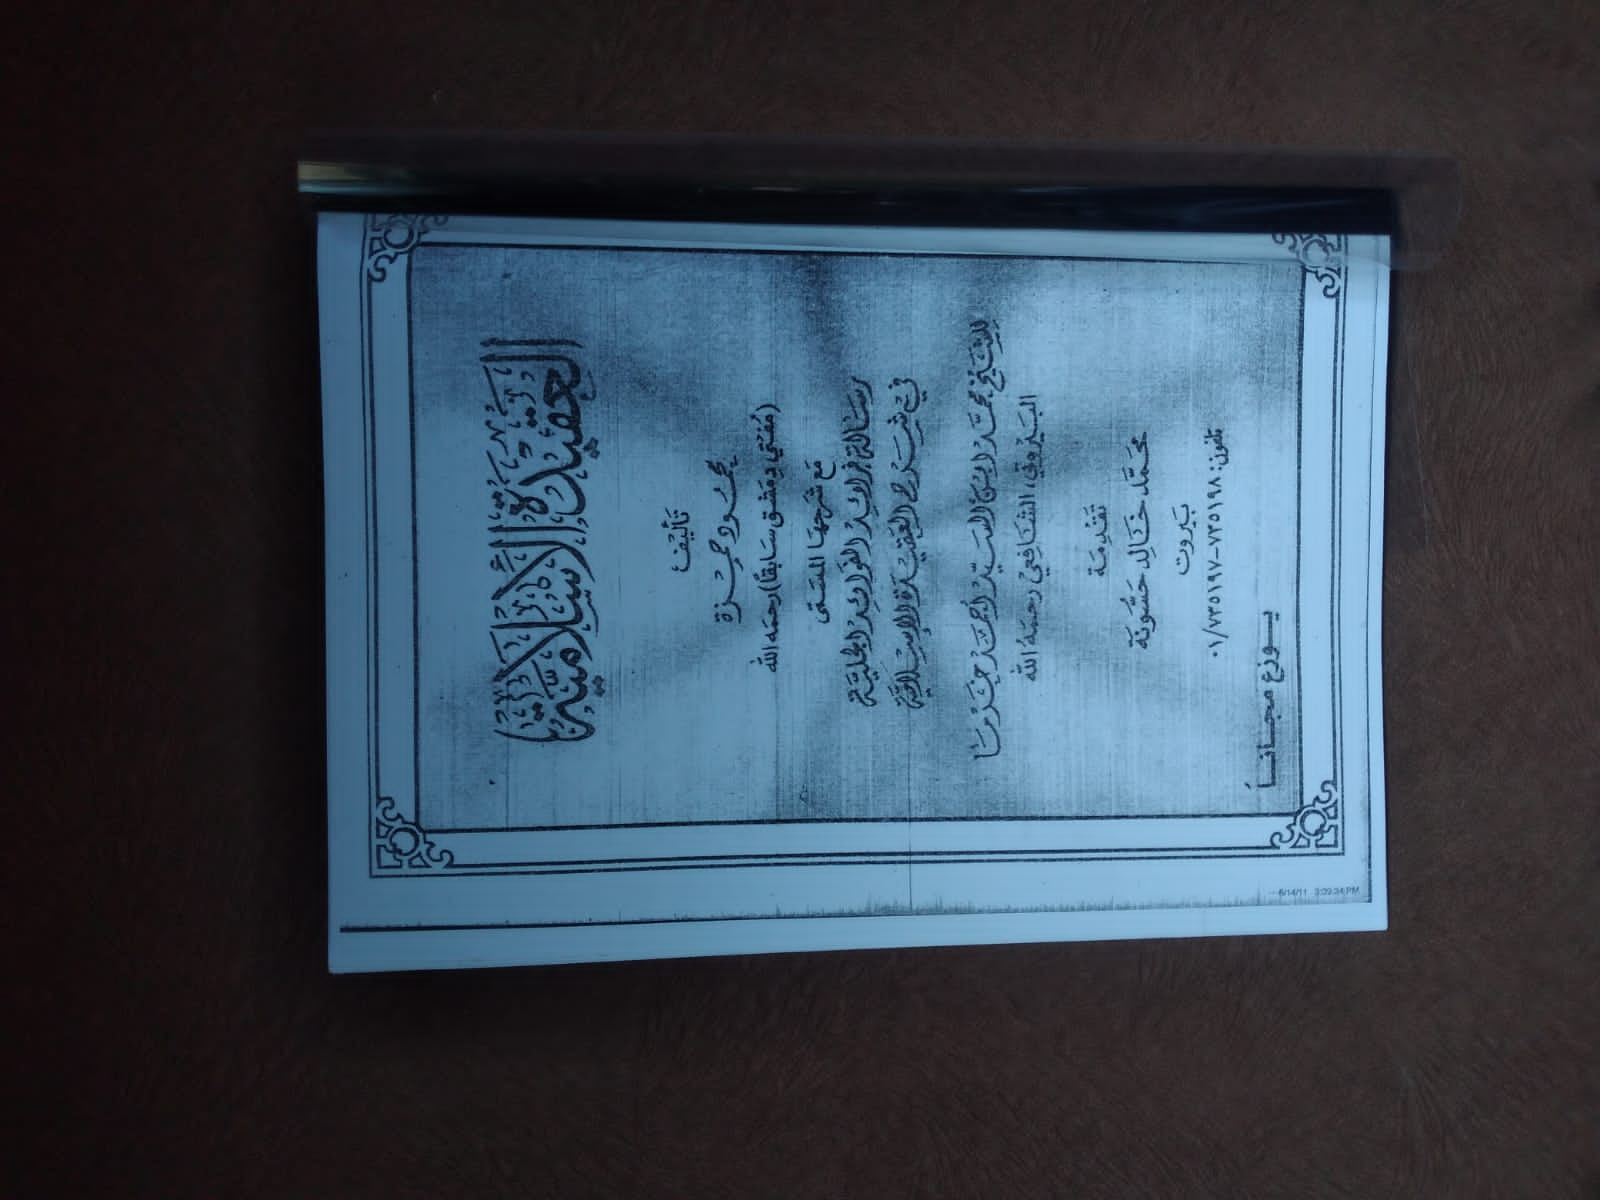 العقيدة الإسلامية
تأليف
محمود حمزة
(مفتي دمشق سابقاً) رحمه الله
مع شرحها المسمى
رسالة فرائد الفوائد الجلية
في شرح العقيدة الإسلامية
للشيخ محمد ابن السيد أحمد خرما
البيروتي، الشافعي رحمه الله
تقدمة
محمد خالد حسونة
بيروت
تلفون: ٧٣٥١٩٨-٠١/٧٣٥١٩٧
يوزع مجاناً
6/14/11 3:39:34 PM